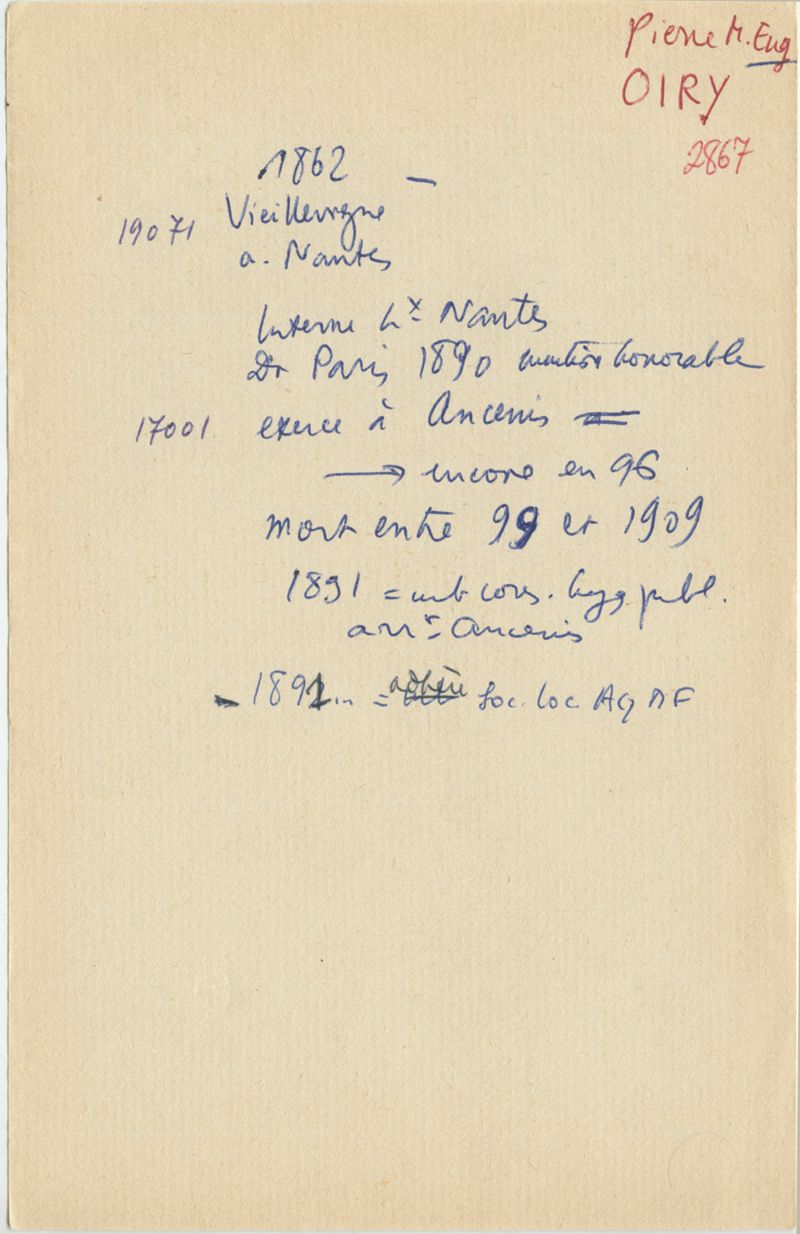 Pierre M. Eug
OIRY
2867
1862 –
19071 Vieillevigne
a. Nantes
Interne hx Nantes
Dr Paris 1890 mention honorable
17001 exerce à Ancenis =
→ encore en 96
mort entre 99 et 1909
1891 = mb cons. hyg. publ.
arrt Ancenis
– 1891.. = adhère Soc. loc. AGMF